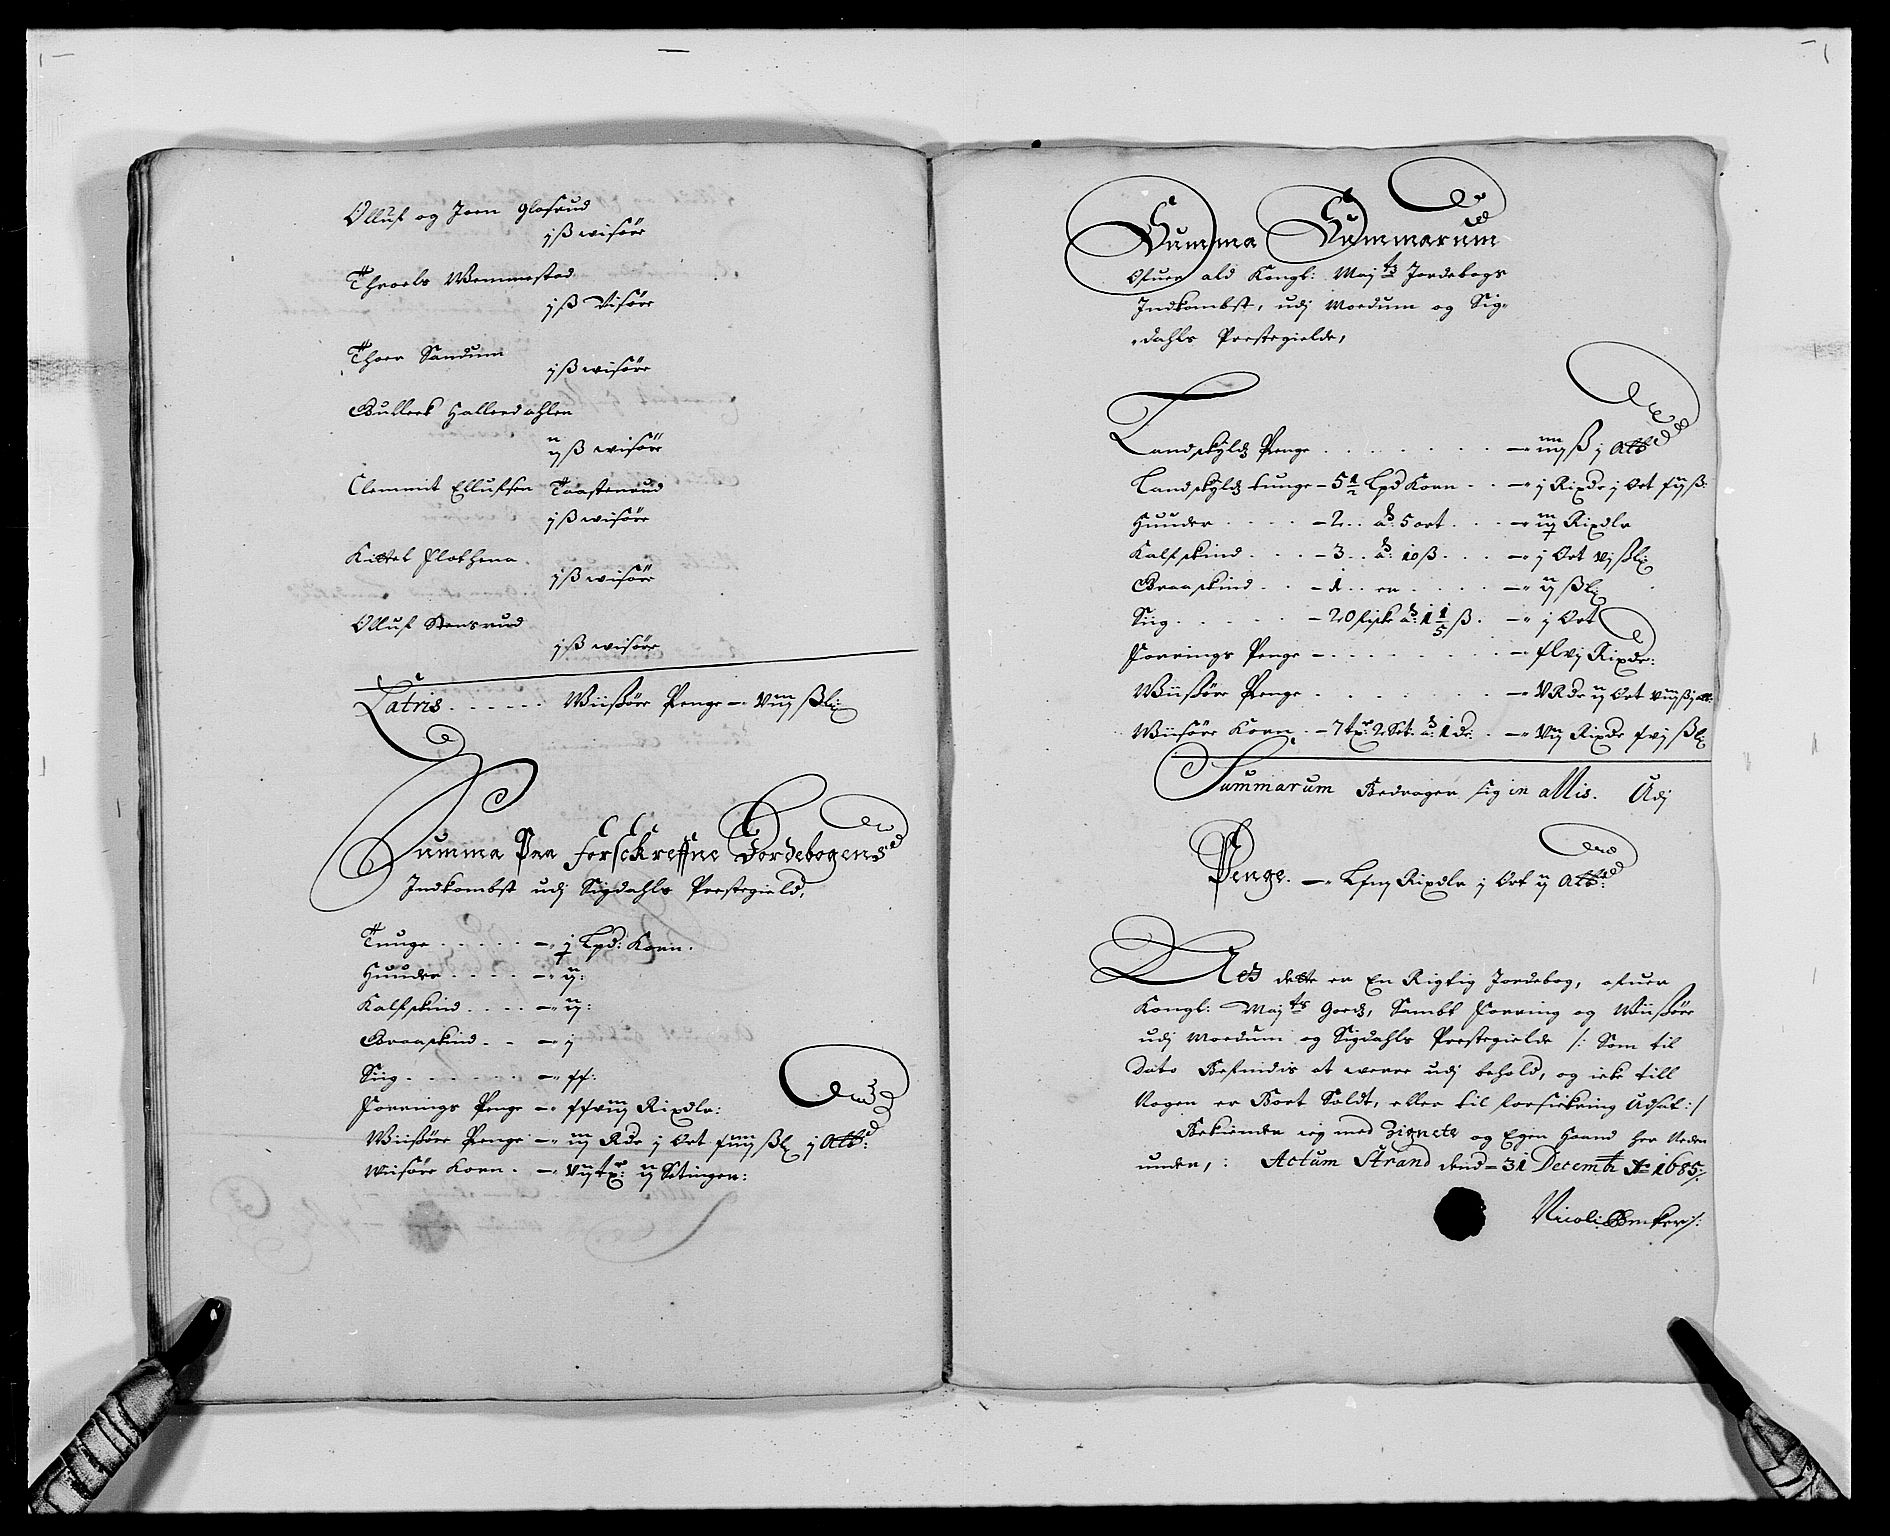 Olluf og Joen Glosrud
j ß wisöre
Throels Wemmestad
j ß Visöre
Thoer Sandum
j ß wisöre
Gulleck Hallesdahlen
ij ß wisöre
Clement Ellufsen Taastenrud
j ß wisöre
Kittel Flothena
j ß wisöre
Olluf Stensrud
j ß wisöre
Latris . . . . . . Wiißöre Penge — viij ßl:
Summa Paa forsckreffne Jordebogens
Indkombst udj Sigdahls Prestegield,
Tunge . . . . . — j Lpd: Korn.
Huuder . . . . — ij:
Kalfskind . . . . — ij:
Graaskind . . — j
Siig . . . . . . — xx:
Forrings Penge — xxviij Rixdlr:
Wiißöre Penge — iij Rdr j Ort xiiij ßl j Alb:
Wiisöre Korn . — vij tr: ij Setinger:
Summa Summarum
Ofuer ald Kongl: Maj:ts Jordebogs
Indkombst, udj Moedum og Sig-
-dahls Prestegielde,
Landskyldz Penge . . . . . . . — iiij ß j Alb:
Landskyldz tunge — 5 1/2 Lpd Korn . . — j Rixdr j Ort xij ß:
Huuder . . . . — 2 . . a: 5 ort . . . — Rixdlr
Kalfskind . . . — 3 . . a: 10 ß . . . — j Ort vj ßl:
Graaskind . . — 1 . . er . . . . — ij ßl:
Siig . . . . . — 20 fiske a: 1 1/5 ß . — j Ort
Forrings Penge — . . . . . . . — xlvj Rixdr:
Wiißöre Penge . . . . . . . — v Rdr ij Ort viij ß j alb:
Wiisöre Korn . — 7 tr: 2 Set: a: 1 dr: . — vij Rixdr xvj ßl:
Summarum Bedrager sig in allis. Udj
Penge. — Lxiij Rixdlr j Ort ij Alb:
At dette er En Rigtig Jordebog, ofuer
Kongl: Maj:ts Goedz, Sambt Forring og Wiißöre
udj Moedum og Sigdahls Prestegielde /: Som til
Dato Befindis at werre udj behold, og icke till
Nogen er Bort Soldt, eller til forsickring Udsat: /
Bekiender ieg med Zignete og Egen Haand her Neden
under, : Actum Strand dend — 31 Decembr Ao 1685:
Nicoli: Becker: